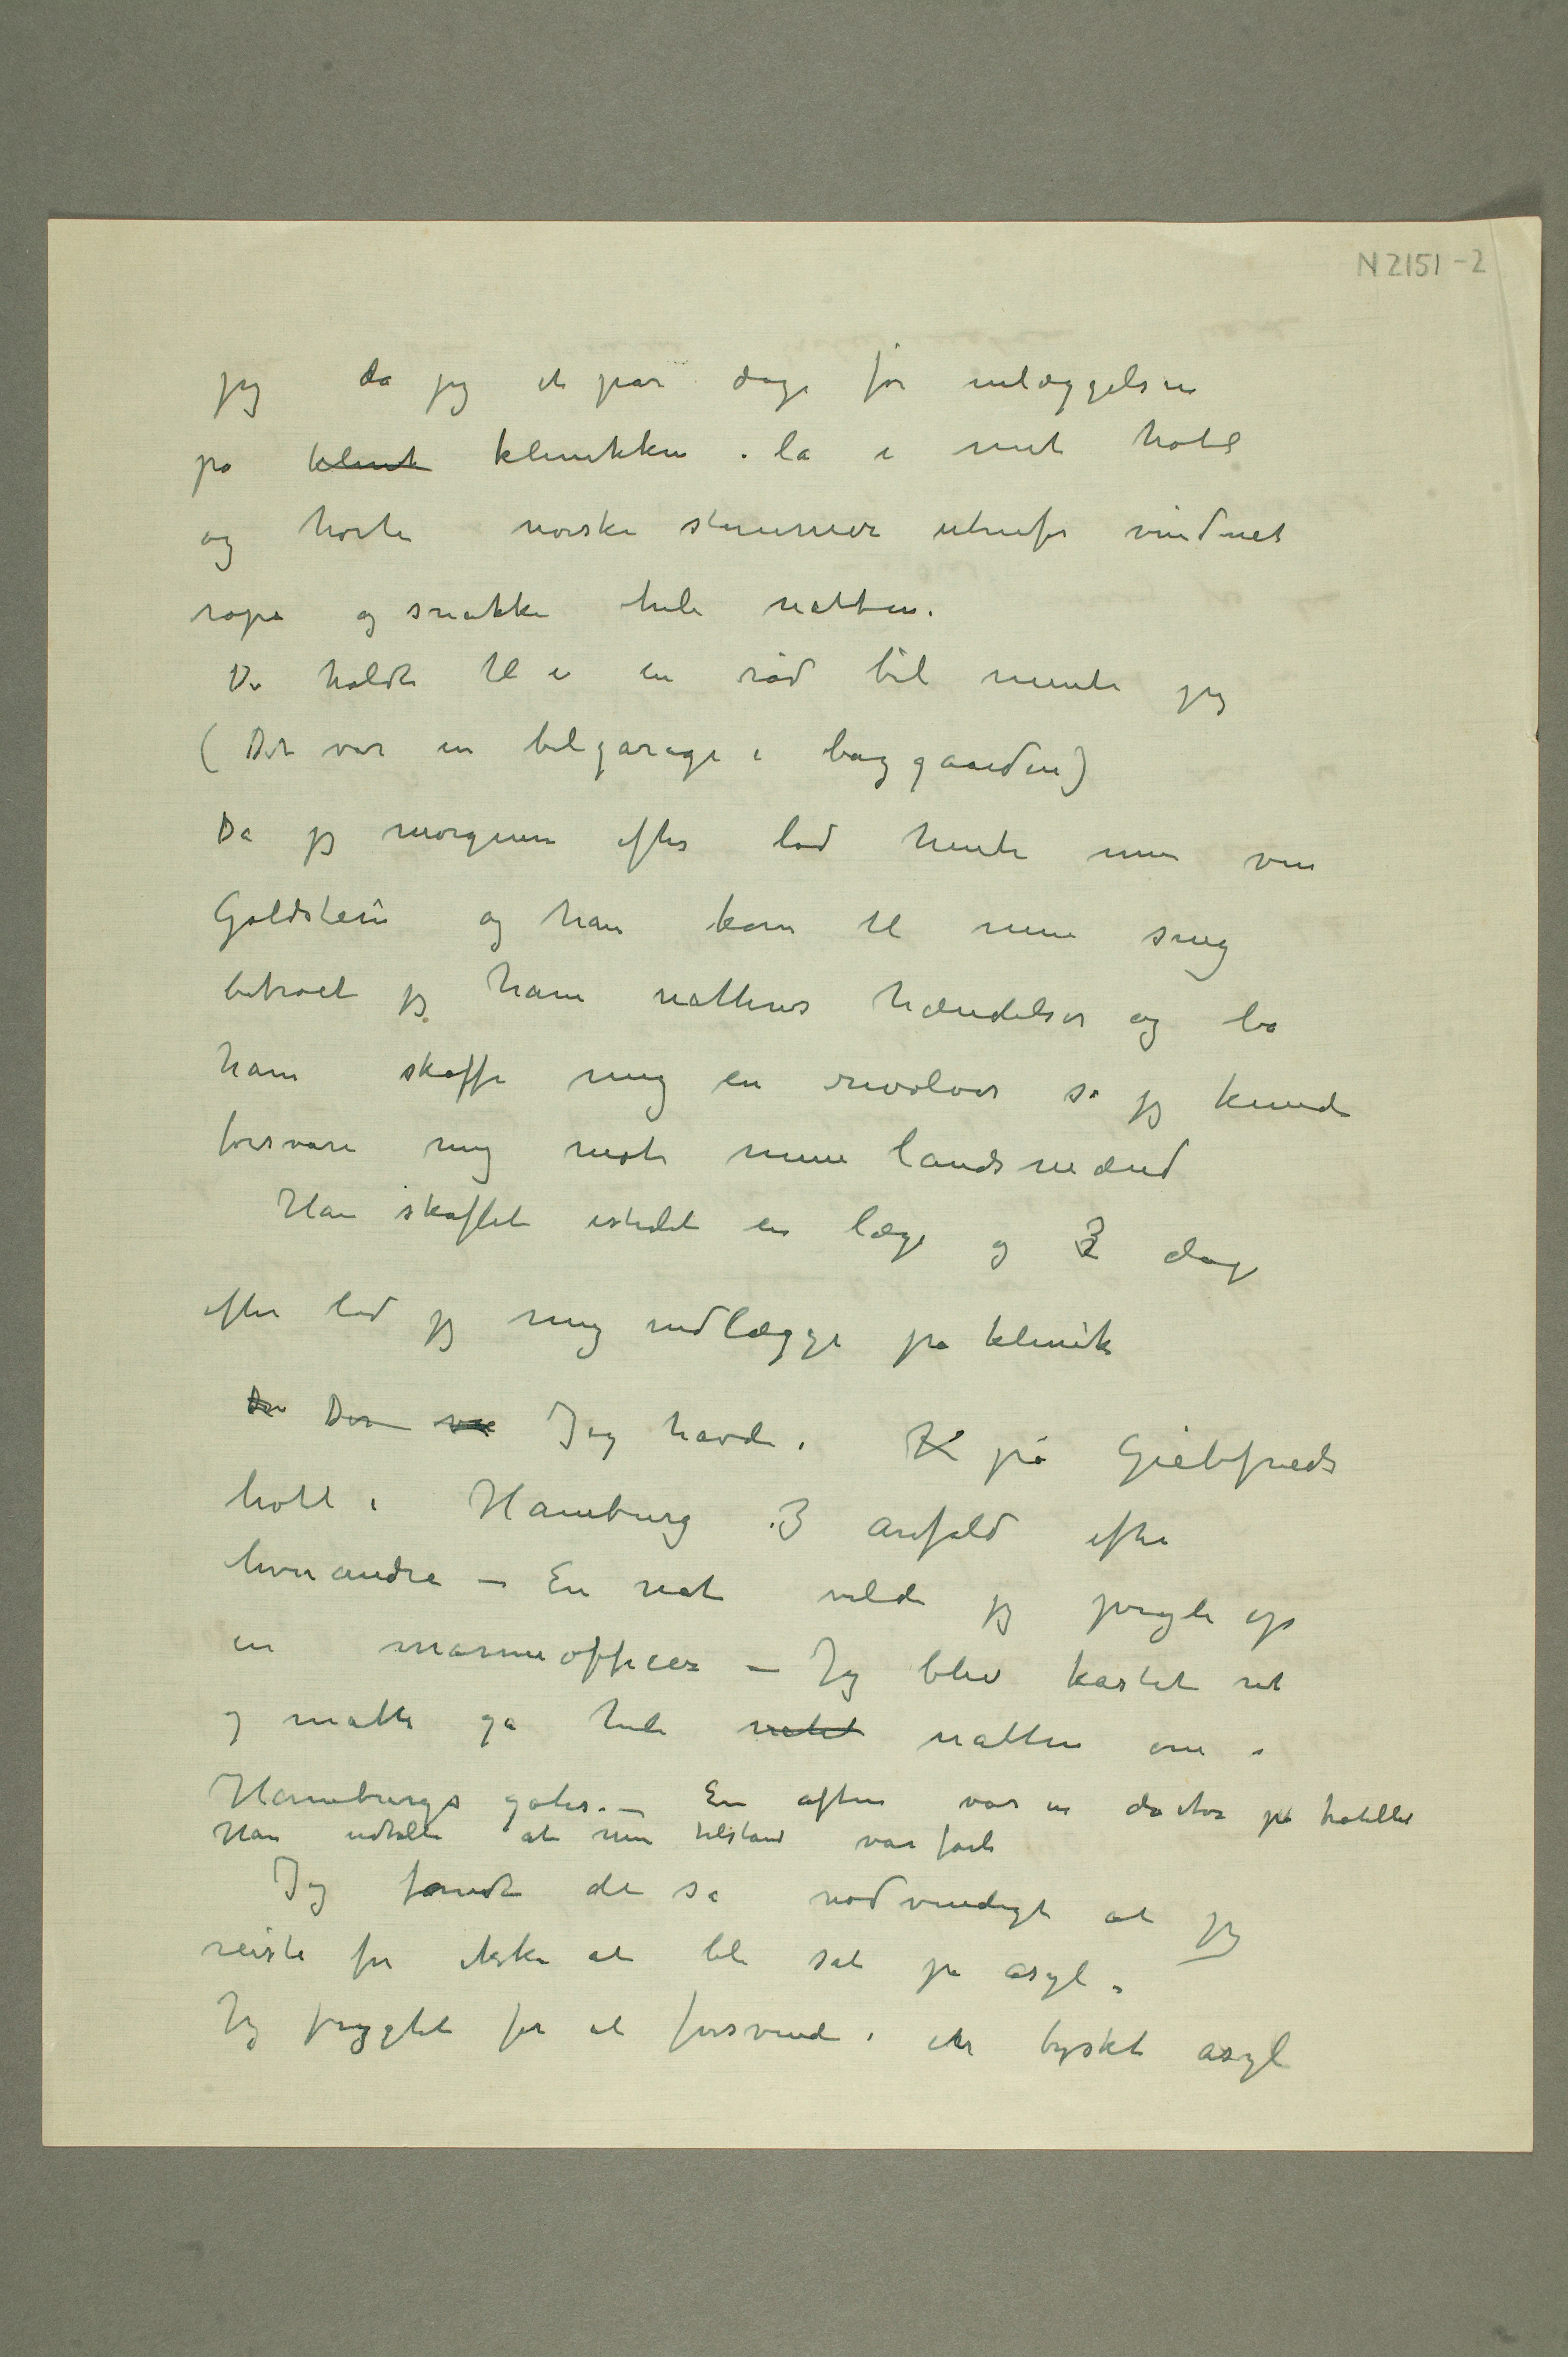 N 2151-2
jeg da jeg et par dage før inlæggelsen
på klinik klinikken . lå i mit hotel
og hørte norske stemmer utenfor vinduet
ropa og snakke hele natten.
De holdt til i en rød bil mente jeg
(Det var en bilgarage i baggaarden)
Da jeg morgenen efter lod hente min ven
Goldstein og han kom til min seng
betroet jeg ham nattens hændelser og ba
ham skaffe mig en revolver så jeg kunde
forsvare mig mot mine landsmænd
Han skaffet istedet en læge og 3 dage
efter lod jeg mig indlægge på klinik
De Der var Jeg havde i K på Giebfrieds
hotel i Hamburg 3 anfald efter
hverandre – En nat vilde jeg pryle op
en marineofficer – Jeg blev kastet ut
og måtte gå hele natet natten om i
Hamburgs gater. – En aften var en doctor på hotellet
Han udtalte at min tilstand var farli
Jeg fandt det så nødvendigt at jeg
reiste for ikke at bli sat på asyl.
Jeg frygtet for at forsvinde i et tyskt asyl